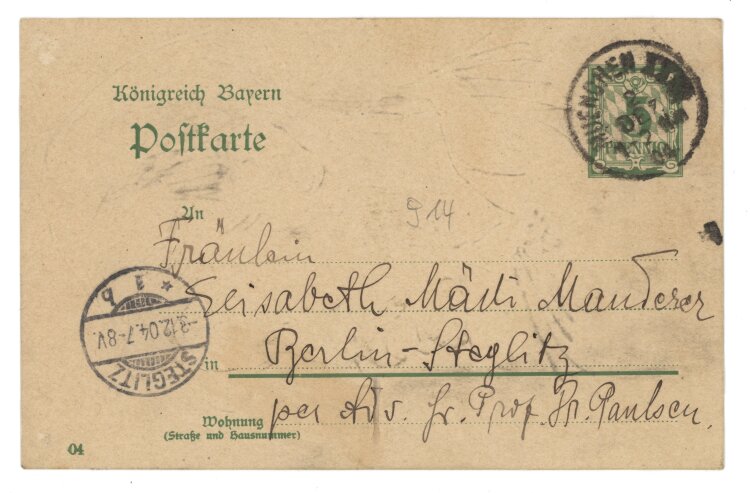 Königreich Bayern
Postkarte
MUENCHEN
5
PFENNIG
An
914
Fräulein
Elisabeth Märti Manderer
Berlin-Steglitz
in
per Adr. Hr. Prof. Dr. Paulsen.
Wohnung
(Straße und Hausnummer)
04
* 1 b
-3.12.04.7-8V.
STEGLITZ